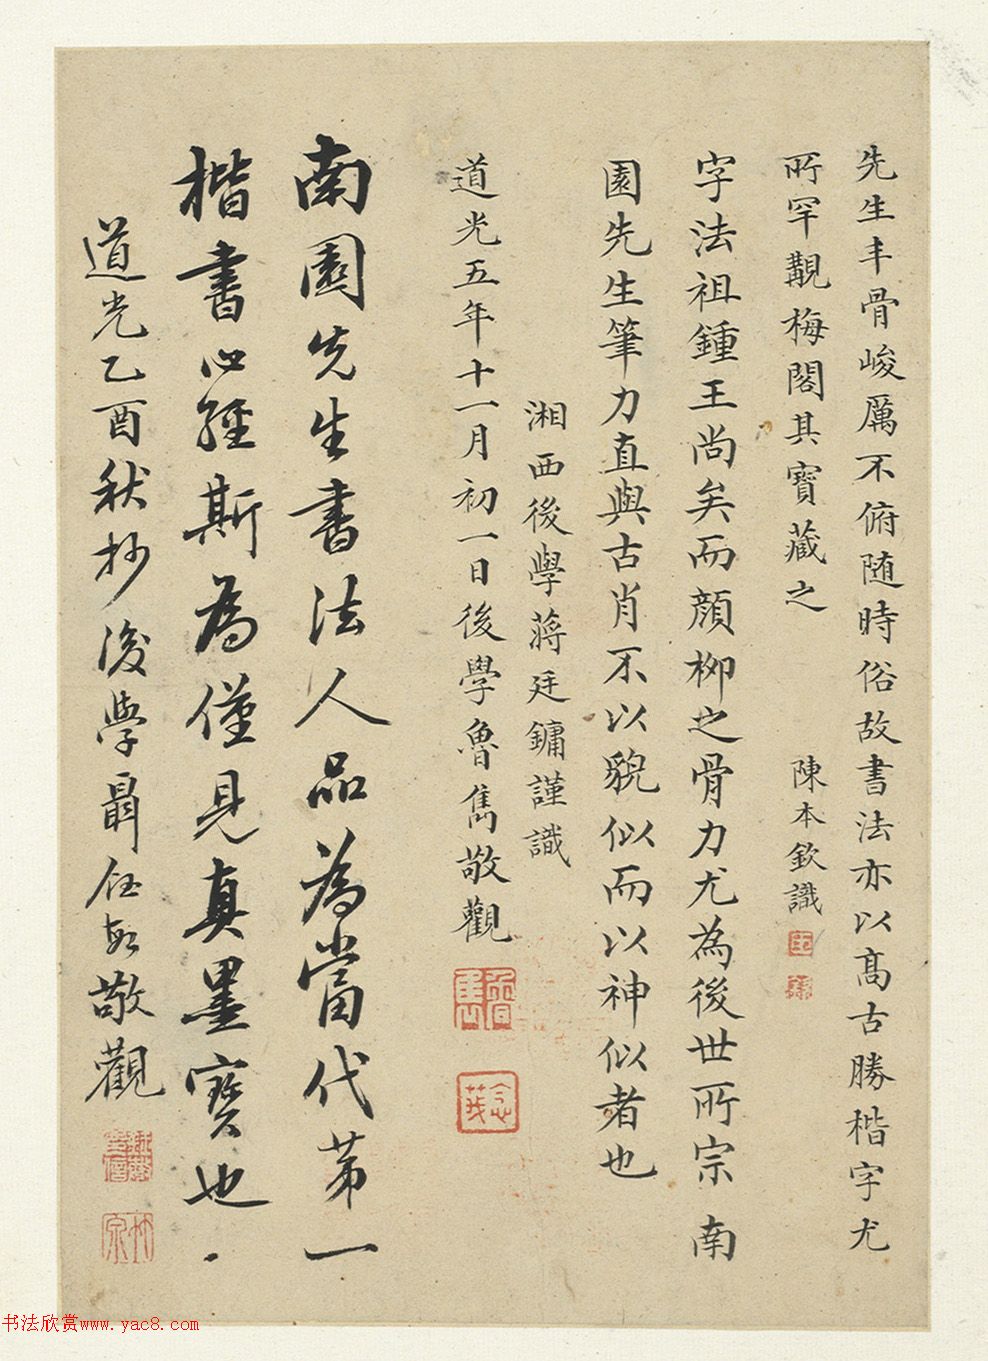 先生丰骨峻厲不俯随時俗故書法亦以高古勝楷字尤
所罕覯梅閣其寶藏之
陳本欽識
字法祖鍾王尚矣而顔柳之骨力尤為後世所宗南
園先生筆力直與古肖不以貌似而以神似者也
湘西後學蔣廷鏞謹識
道光五年十一月初一日後學魯雋敬觀
南園先生書法人品為當代第一
楷書心經斯為僅見真墨寶也
道光乙酉秋抄後學聶敬觀
书法欣赏www.yac8.com